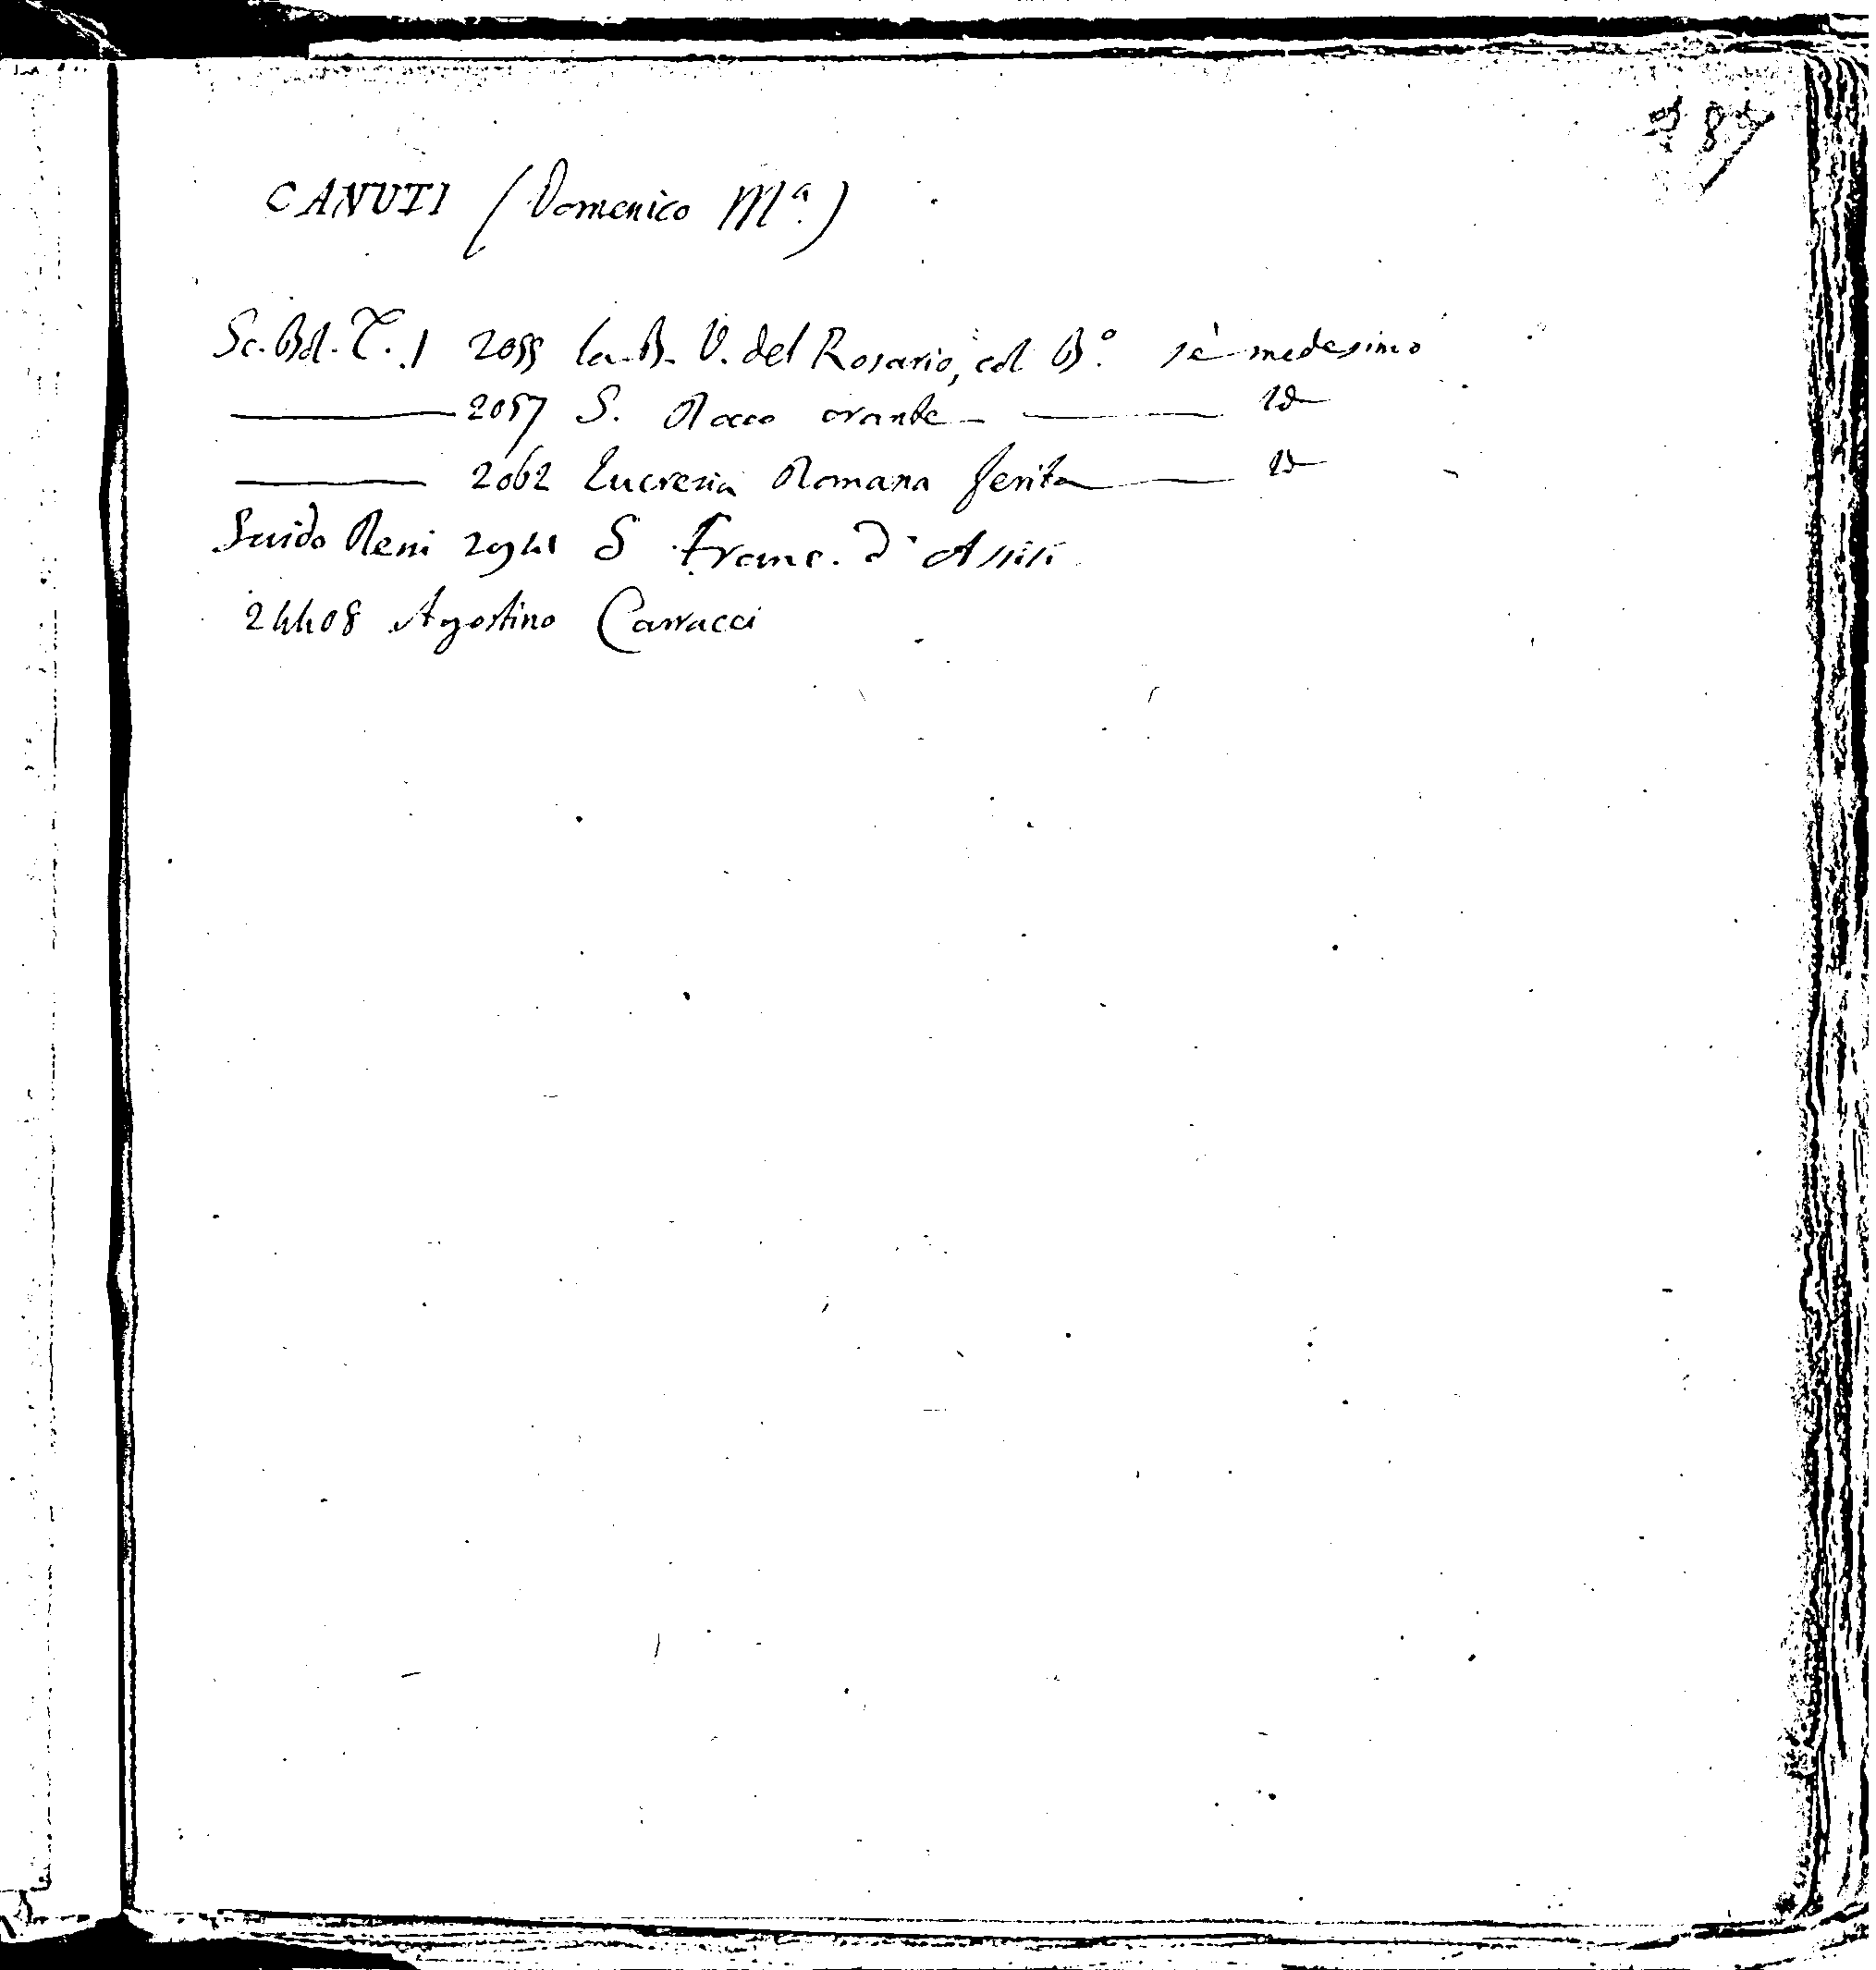 87
CANUTI (Domenico Mª.)
Sc. Bol. T. 1 2055 la B. V. del Rosario, col Bº. sè medesimo
2057 S. Rocco orante Id
2062 Lucresia Romana ferita Id
Guido Reni 20941 S Franc. d'Assisi
24408 Agostino Carracci